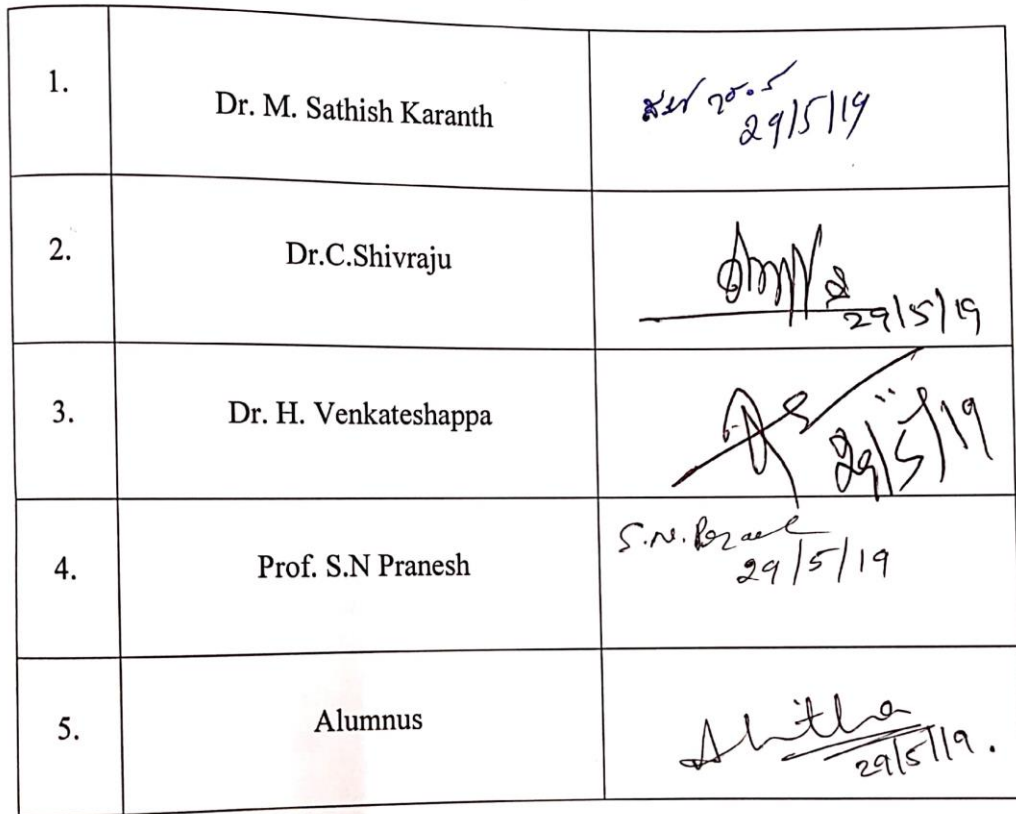 1.
Dr. M. Sathish Karanth
29/5/19
2.
Dr.C.Shivraju
29/5/19
3.
Dr. H. Venkateshappa
29/5/19
4.
Prof. S.N Pranesh
S.N.
29/5/19
5.
Alumnus
29/5/19.